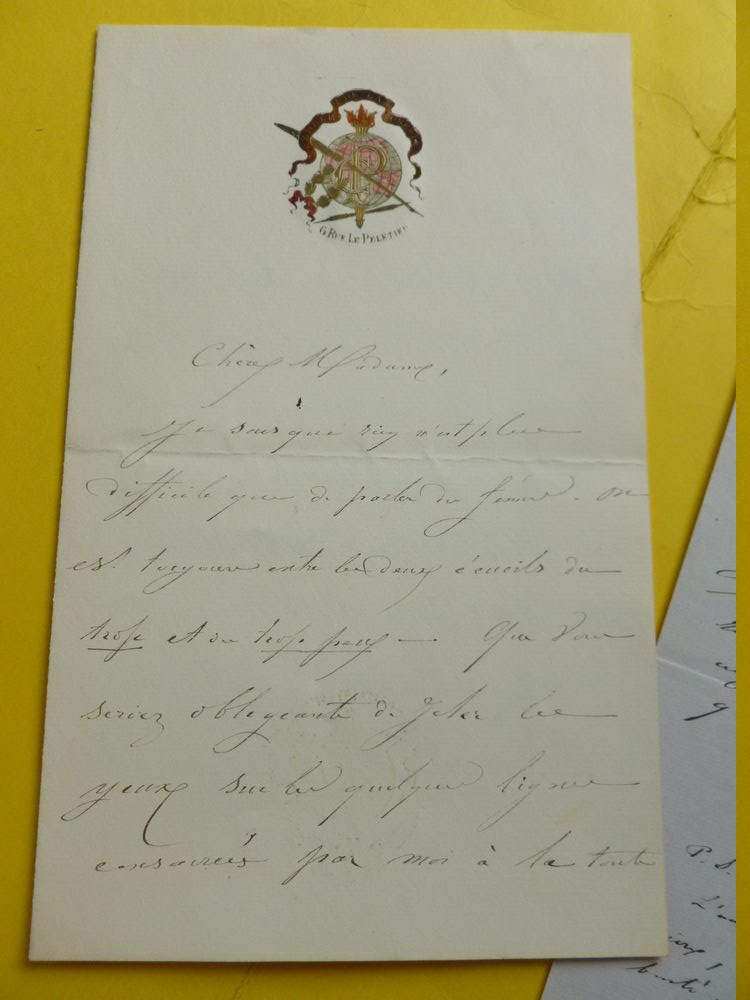 6 RUE LE PELETIER
Chère Madame,
Je sais que rien n'est plus
difficile que de parler du femme. on
est toujours entre les deux écueils du
trop et du trop peu — Que vous
seriez obligeante de jeter les
yeux sur les quelques lignes
consacrées par moi à la toute
P.S.